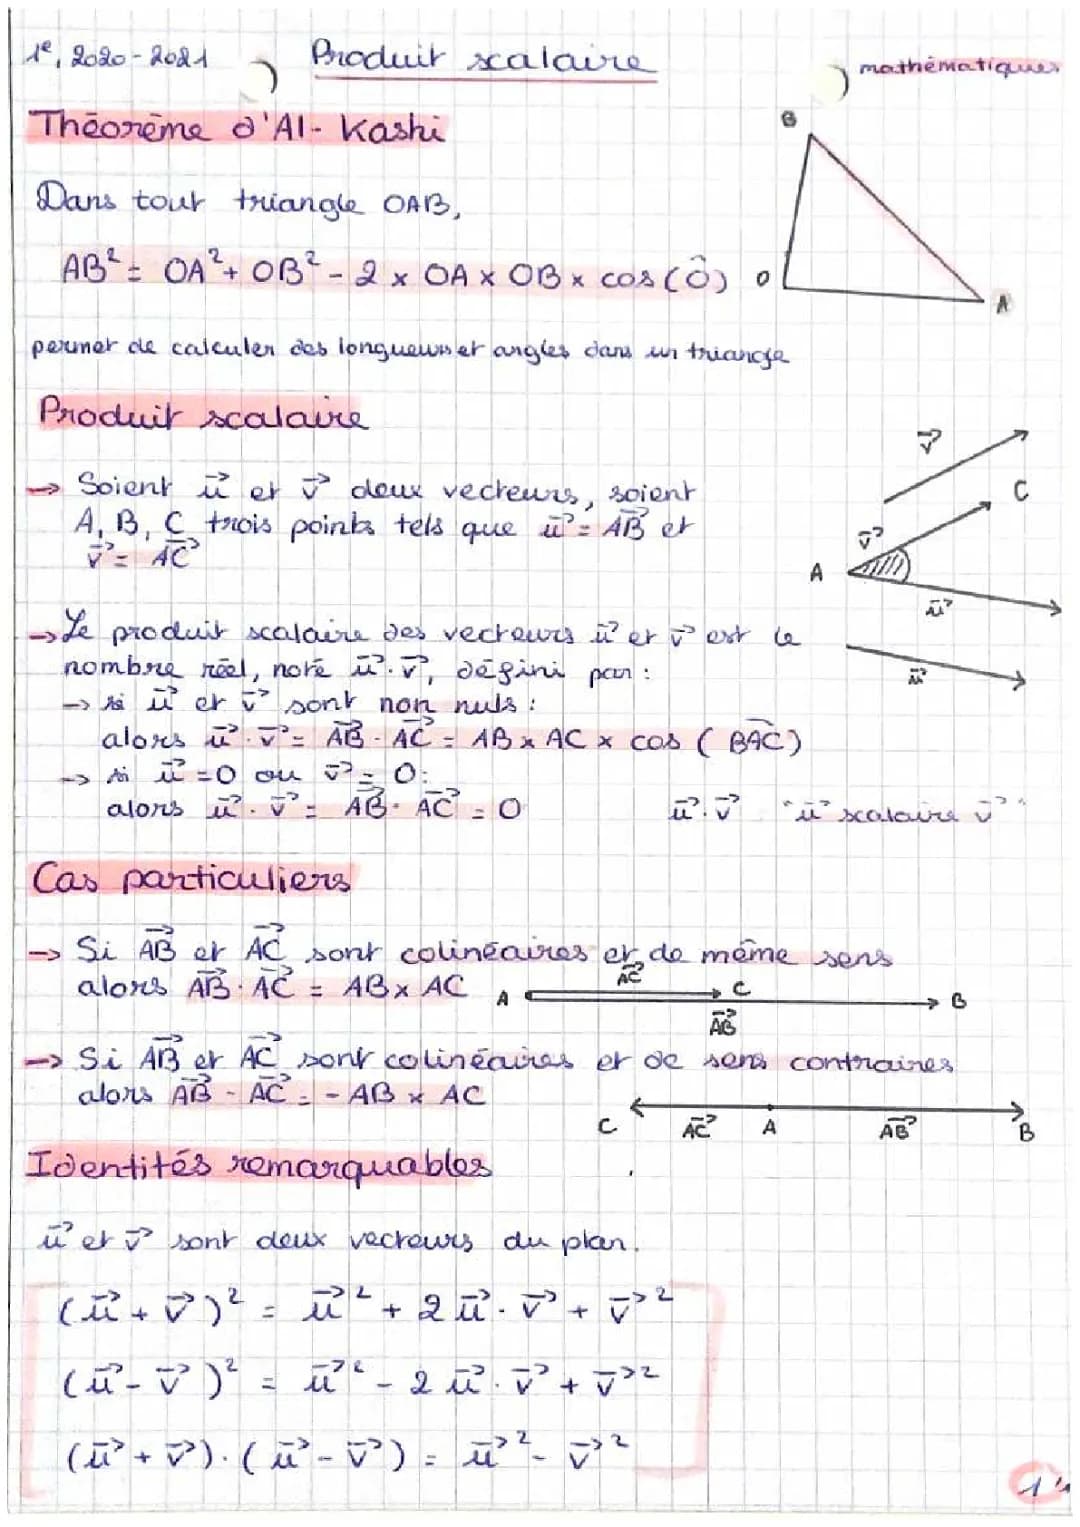 1e, 2020-2021
Produit scalaire
mathématiques
Théorème d'Al-Kashi
B
Dans tout triangle OAB,
AB² = OA² + OB² - 2 x OA x OB x cos(Ô)
O
A
permet de calculer des longueurs et angles dans un triangle
Produit scalaire
v⃗
→ Soient u⃗ et v⃗ deux vecteurs, soient
C
A, B, C trois points tels que u⃗ = AB⃗ et
v⃗ = AC⃗
v⃗
A
u⃗
→ Le produit scalaire des vecteurs u⃗ et v⃗ est le
nombre réel, noté u⃗.v⃗, défini par :
u⃗
→ si u⃗ et v⃗ sont non nuls :
alors u⃗.v⃗ = AB⃗.AC⃗ = AB x AC x cos (B̂AC)
→ si u⃗ = 0 ou v⃗ = 0 :
alors u⃗.v⃗ = AB⃗.AC⃗ = 0
u⃗.v⃗ "u⃗ scalaire v⃗"
Cas particuliers
→ Si AB⃗ et AC⃗ sont colinéaires et de même sens
alors AB⃗.AC⃗ = AB x AC
A
AC⃗
C
B
AB⃗
→ Si AB⃗ et AC⃗ sont colinéaires et de sens contraires
alors AB⃗ . AC⃗ = - AB x AC
C
AC⃗
A
AB⃗
B
Identités remarquables
u⃗ et v⃗ sont deux vecteurs du plan.
(u⃗ + v⃗)² = u⃗² + 2u⃗.v⃗ + v⃗²
(u⃗ - v⃗)² = u⃗² - 2u⃗.v⃗ + v⃗²
(u⃗ + v⃗).(u⃗ - v⃗) = u⃗² - v⃗²